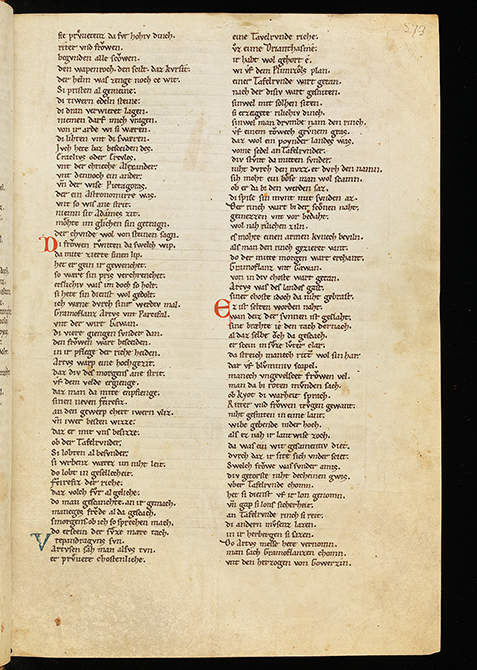 sie pruueten da fvr hohiv dinch.
riter vnd frowen.
begunden alle scowen.
den wapenroch. den scilt. daz kvrsit.
der helm was zenge noch ze wit.
Si pristen al gemeine:
di tiwern edeln steine:
di dran verwieret lagen.
niemen darf mich vragen.
von ir arde wi si waren.
di lihten vnt di swaren.
Iveh bete baz bescheiden des.
Eraclius oder Ercules.
vnt der chrieche Alexander.
vnt dennoch ein ander.
vn̄ der wise Pictagoras.
der ein Astronomirre was.
vnt so wis ane strit.
niemn sit Adames zit.
mohte im glichen sin getragn.
der chvnde wol von steinen sagn.
Di frowen rvnten da swelch wip.
da mite zierte sinen lip.
het er gein ir gewenchet.
so wart sin pris verchrenchet.
etslichiv was im doch so holt.
si hete sin dienst wol gedolt.
ich wæne dvrch siniv werdiv mal.
Gramoflanz Artvs vnt Parcifal.
vnt der wirt Gawan.
di viere giengen svnder dan.
den frowen wart bescheiden.
in ir pflege der riche heiden.
Artvs warp eine hochgezit.
daz div des morgens ane strit.
vf dem velde ergienge.
daz man da mite enpfienge.
sinen neven feirefiz.
an den gewerp chert iwern vliz.
vn̄ iwer besten wizze.
daz er mit vns besizze.
ob der Tafelrvnder.
Si lobten al besvnder.
si wrbenz wærez im niht leit.
do lobt in gesellecheit.
feirefiz der riche:
daz volch fvr al geliche:
do man geschanchte. an ir gemach.
maneges frode al da gesach.
smorgens ob ich so sprechen mach.
do erscein der svze mære tach.
Vtepandragvns svn.
Artvsen sah man alsvs tvn.
er prvuete chostenliche.
eine Tavelrvnde riche:
vz eime Drianthasme:
ir habt wol gehort e.
wi vf dem Plimizols plan.
einer Tafelrvnde wart getan.
nach der disiv wart gesniten.
sinwel mit solhen siten.
si erzeigete richiv dinch.
sinwel man drvmbe nam den rinch.
vf einem towech grvnem gras.
daz wol ein poynder landes was.
vome sedel an Tafelrvnder.
div stvnt da mitten svnder.
niht dvrch den nvzz. et dvrh den namn.
sih moht ein bose man wol scamn.
ob er da bi den werden saz.
di spise sin mvnt mit svnden az.
Der rinch wart bi der sconen naht.
gemezzen vnt vor bedaht.
wol nah richen ziln.
es mohte einen armen kvnech beviln.
als man den rinch gezieret vant.
do der mitte morgen wart erchant.
Gramoflanz vnt Gawan.
von in div choste wart getan.
Artvs was des landes gast.
siner choste idoch da niht gebrast.
Ez ist selten worden naht.
wan deiz der svnnen ist geslaht.
sine bræhte ie den tach dernach.
al daz selbe och da gescach.
er scein in svze lvter clar.
da streich manech riter wol sin har.
dar vf blvminiv scapel.
manech vngevelscet frowen vel.
man da bi roten mvnden sach.
ob Kyot di warheit sprach.
Ritter vnd frowen trvgen gewant.
niht gesniten in eime lant.
wibe gebende nider hoch.
als ez nah ir lantwise zoch.
da was ein wit gesamentiv diet.
dvrch daz ir site sich vnder sciet.
Swelch frowe was svnder amis.
div getorste niht decheinen gwis.
vber Tafelrvnde chomn.
het si dienst vf ir lon genomn.
vn̄ gap si lons sicherheit.
an Tafelrvnde rinch si reit.
di andern mvsenz lazen.
in ir herbergen si sazen.
Do Artvs messe hete vernomn.
man sach Gramoflanzen chomn.
vnt den herzogen von Gowerzin.